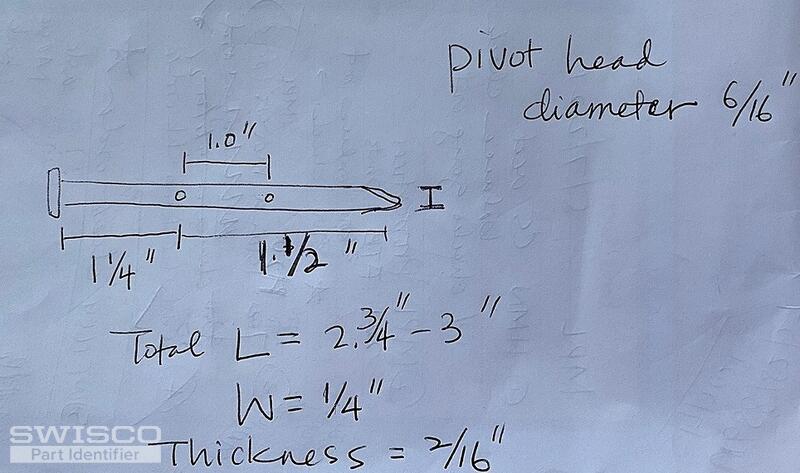 pivot head
diameter 6/16"
1.0"
I
1 1/4"
1.1/2"
Total L = 2.3/4" - 3"
W = 1/4"
Thickness = 2/16"
SWISCO
Part Identifier